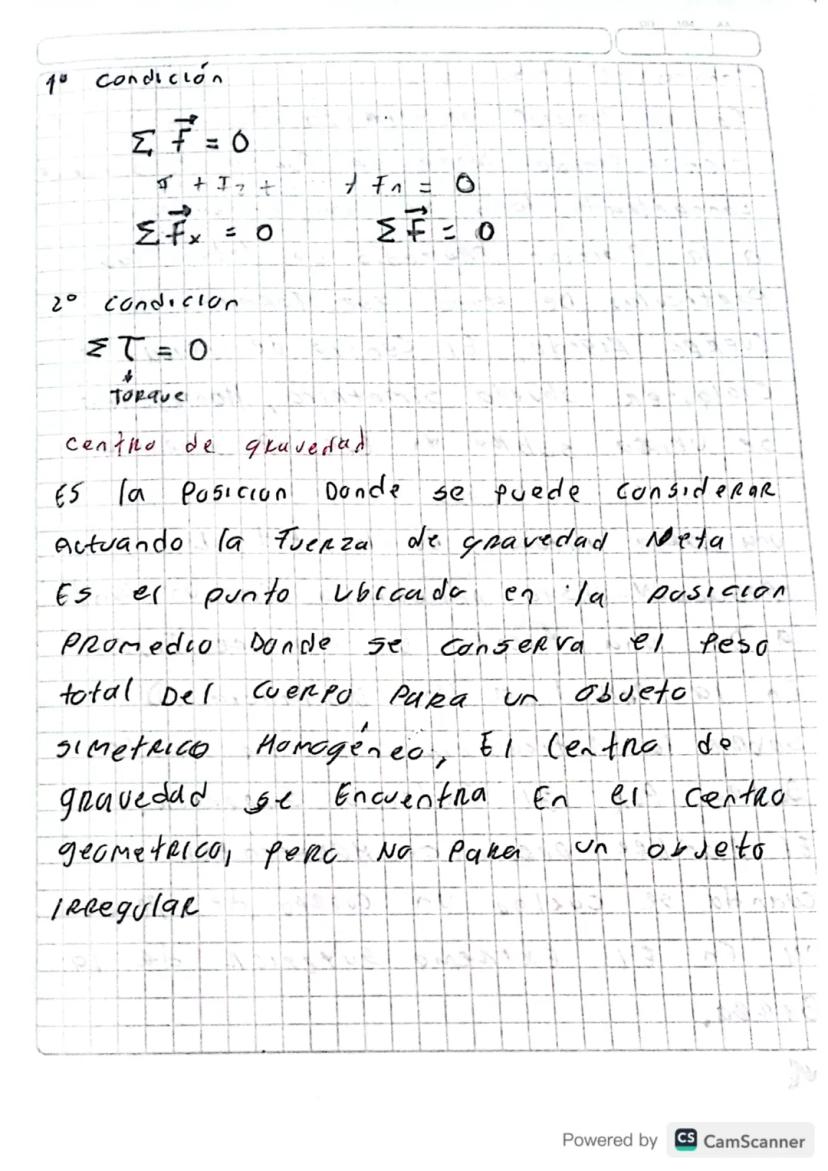 1º condición
Σ F⃗ = 0
+ + Fn = 0
Σ F⃗x = 0 Σ F⃗ = 0
2º condicion
Σ τ = 0
↓
Torque
centro de gravedad
Es la Posicion Donde se puede considerar
actuando la fuerza de gravedad Neta
Es el punto Ubicado en la posicion
promedio Donde se conserva el peso
total Del cuerpo para un objeto
simetrico Homogéneo, El centro de
gravedad se Encuentra En el centro
geometrico, pero No para un objeto
irregular
Powered by CS CamScanner